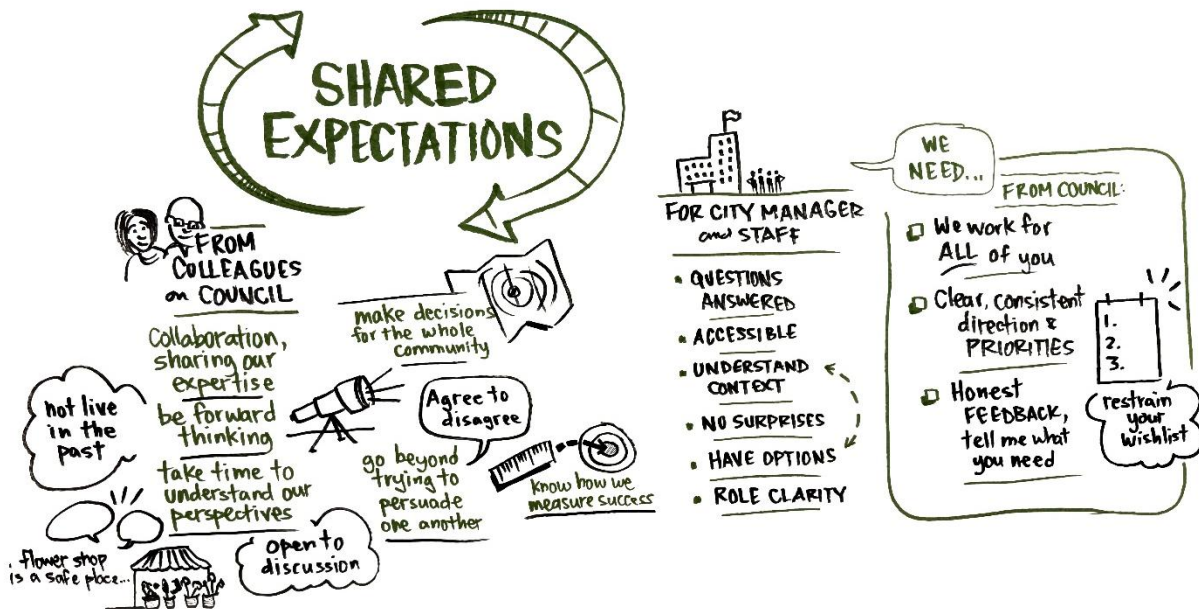 SHARED
EXPECTATIONS
FROM
COLLEAGUES
on COUNCIL
Collaboration,
sharing our
expertise
be forward
thinking
take time to
understand our
perspectives
not live
in the
past
flower shop
is a safe place...
open to
discussion
make decisions
for the whole
community
Agree to
disagree
go beyond
trying to
persuade
one another
know how we
measure success
FOR CITY MANAGER
and STAFF
• QUESTIONS
ANSWERED
• ACCESSIBLE
• UNDERSTAND
CONTEXT
• NO SURPRISES
• HAVE OPTIONS
• ROLE CLARITY
WE
NEED...
FROM COUNCIL:
We work for
ALL of you
Clear, consistent
direction &
PRIORITIES
1.
2.
3.
restrain
your
wishlist
Honest
FEEDBACK,
tell me what
you need